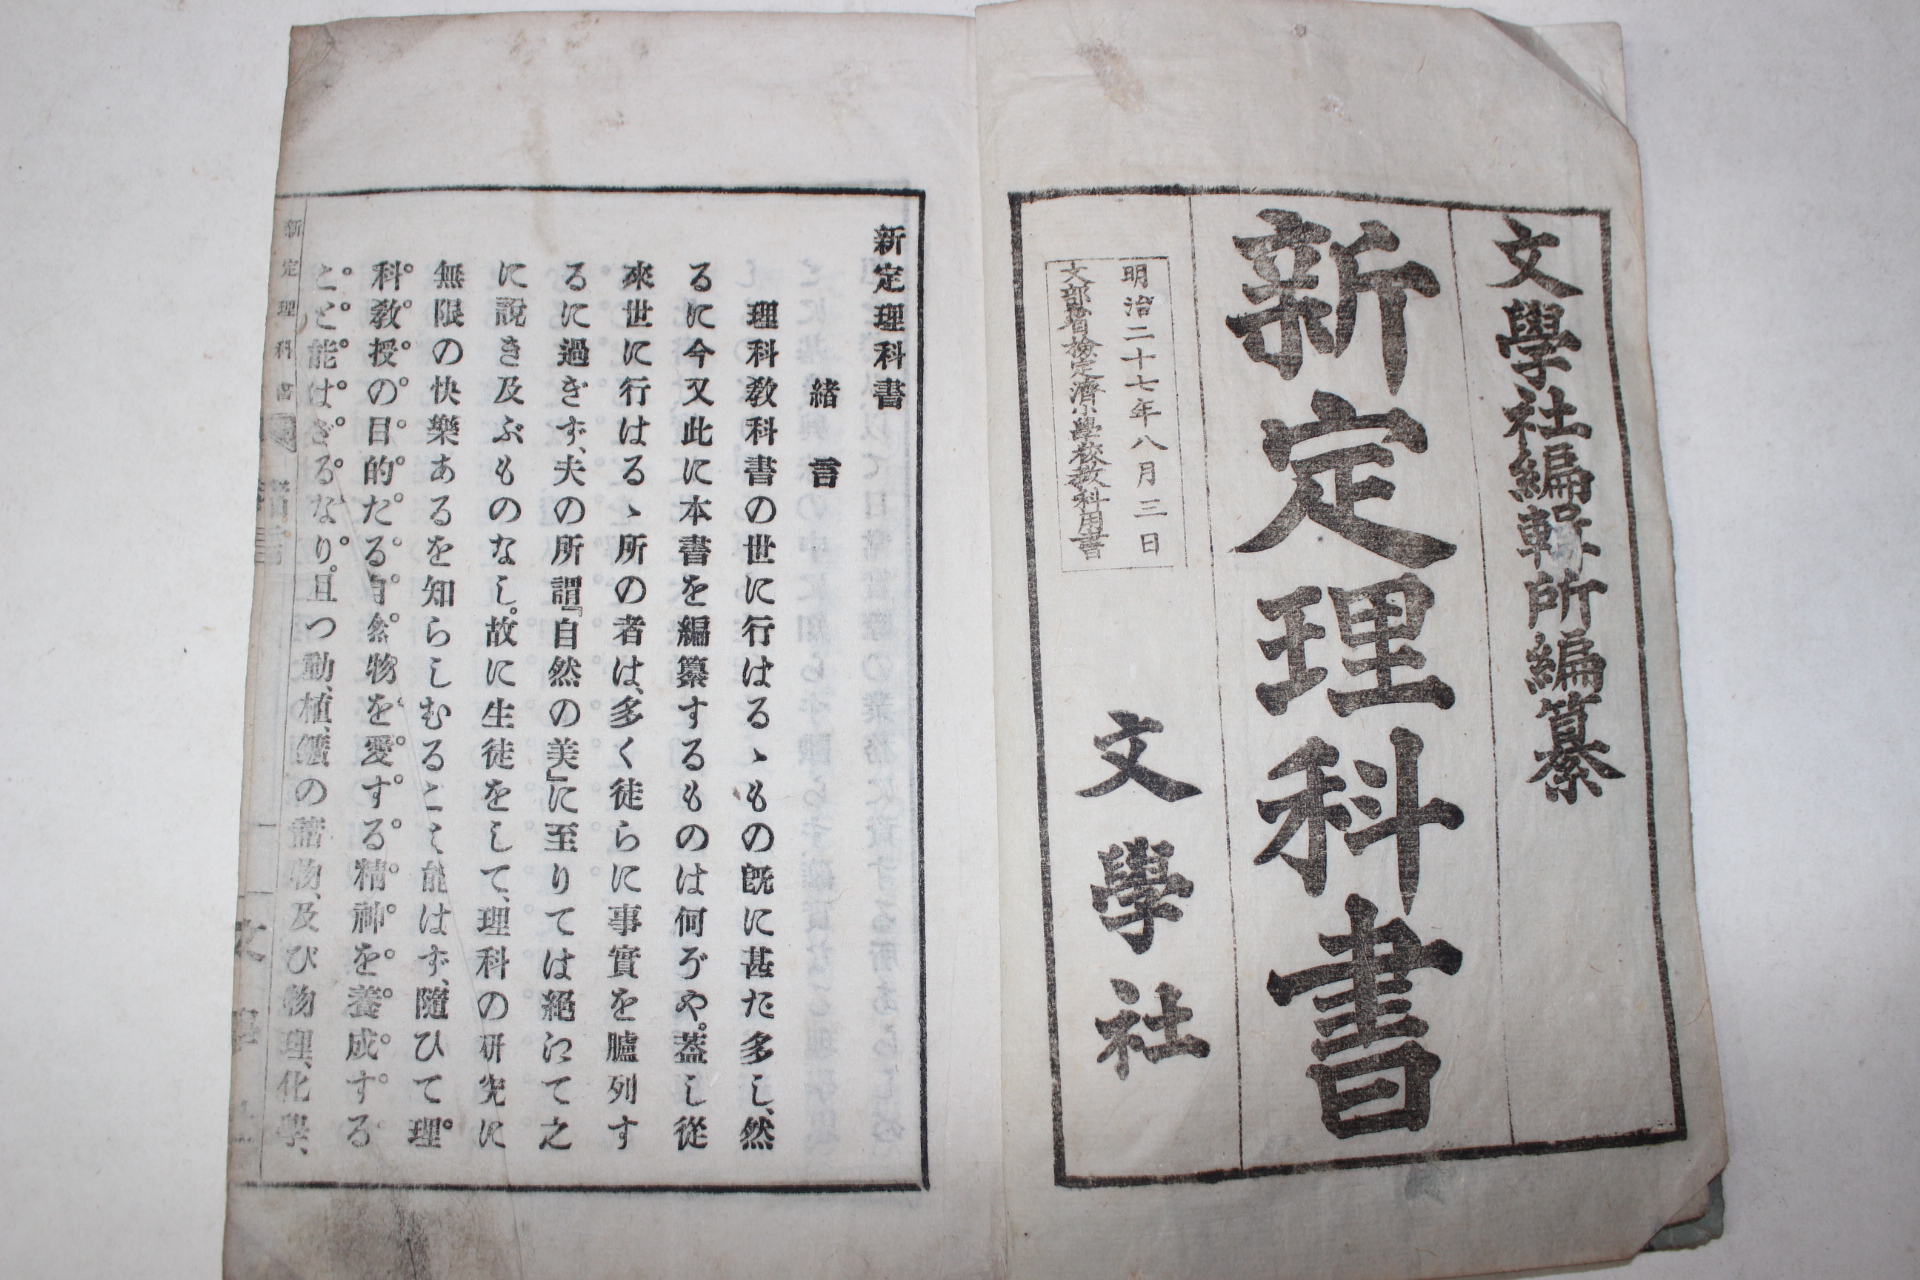 文學社編輯所編纂
新定理科書
明治二十七年八月三日
文部省檢定濟小學校敎科用書
文學社
新定理科書
緖言
理科敎科書の世に行はるゝもの旣に甚た多し、然
るに今又此に本書を編纂するものは何ぞや。蓋し從
來世に行はるゝ所の者は、多く徒らに事實を臚列す
るに過ぎず、夫の所謂『自然の美』に至りては絕ゑて之
に說き及ぶものなし。故に生徒をして、理科の硏究に
無限の快樂あるを知らしむること能はず、隨ひて理
科敎授の目的たる自然物を愛する精神を養成する
こと能はざるなり。且つ動、植、鑛の諸物、及び物理、化學、
新定理科書
緖言
一
文學社